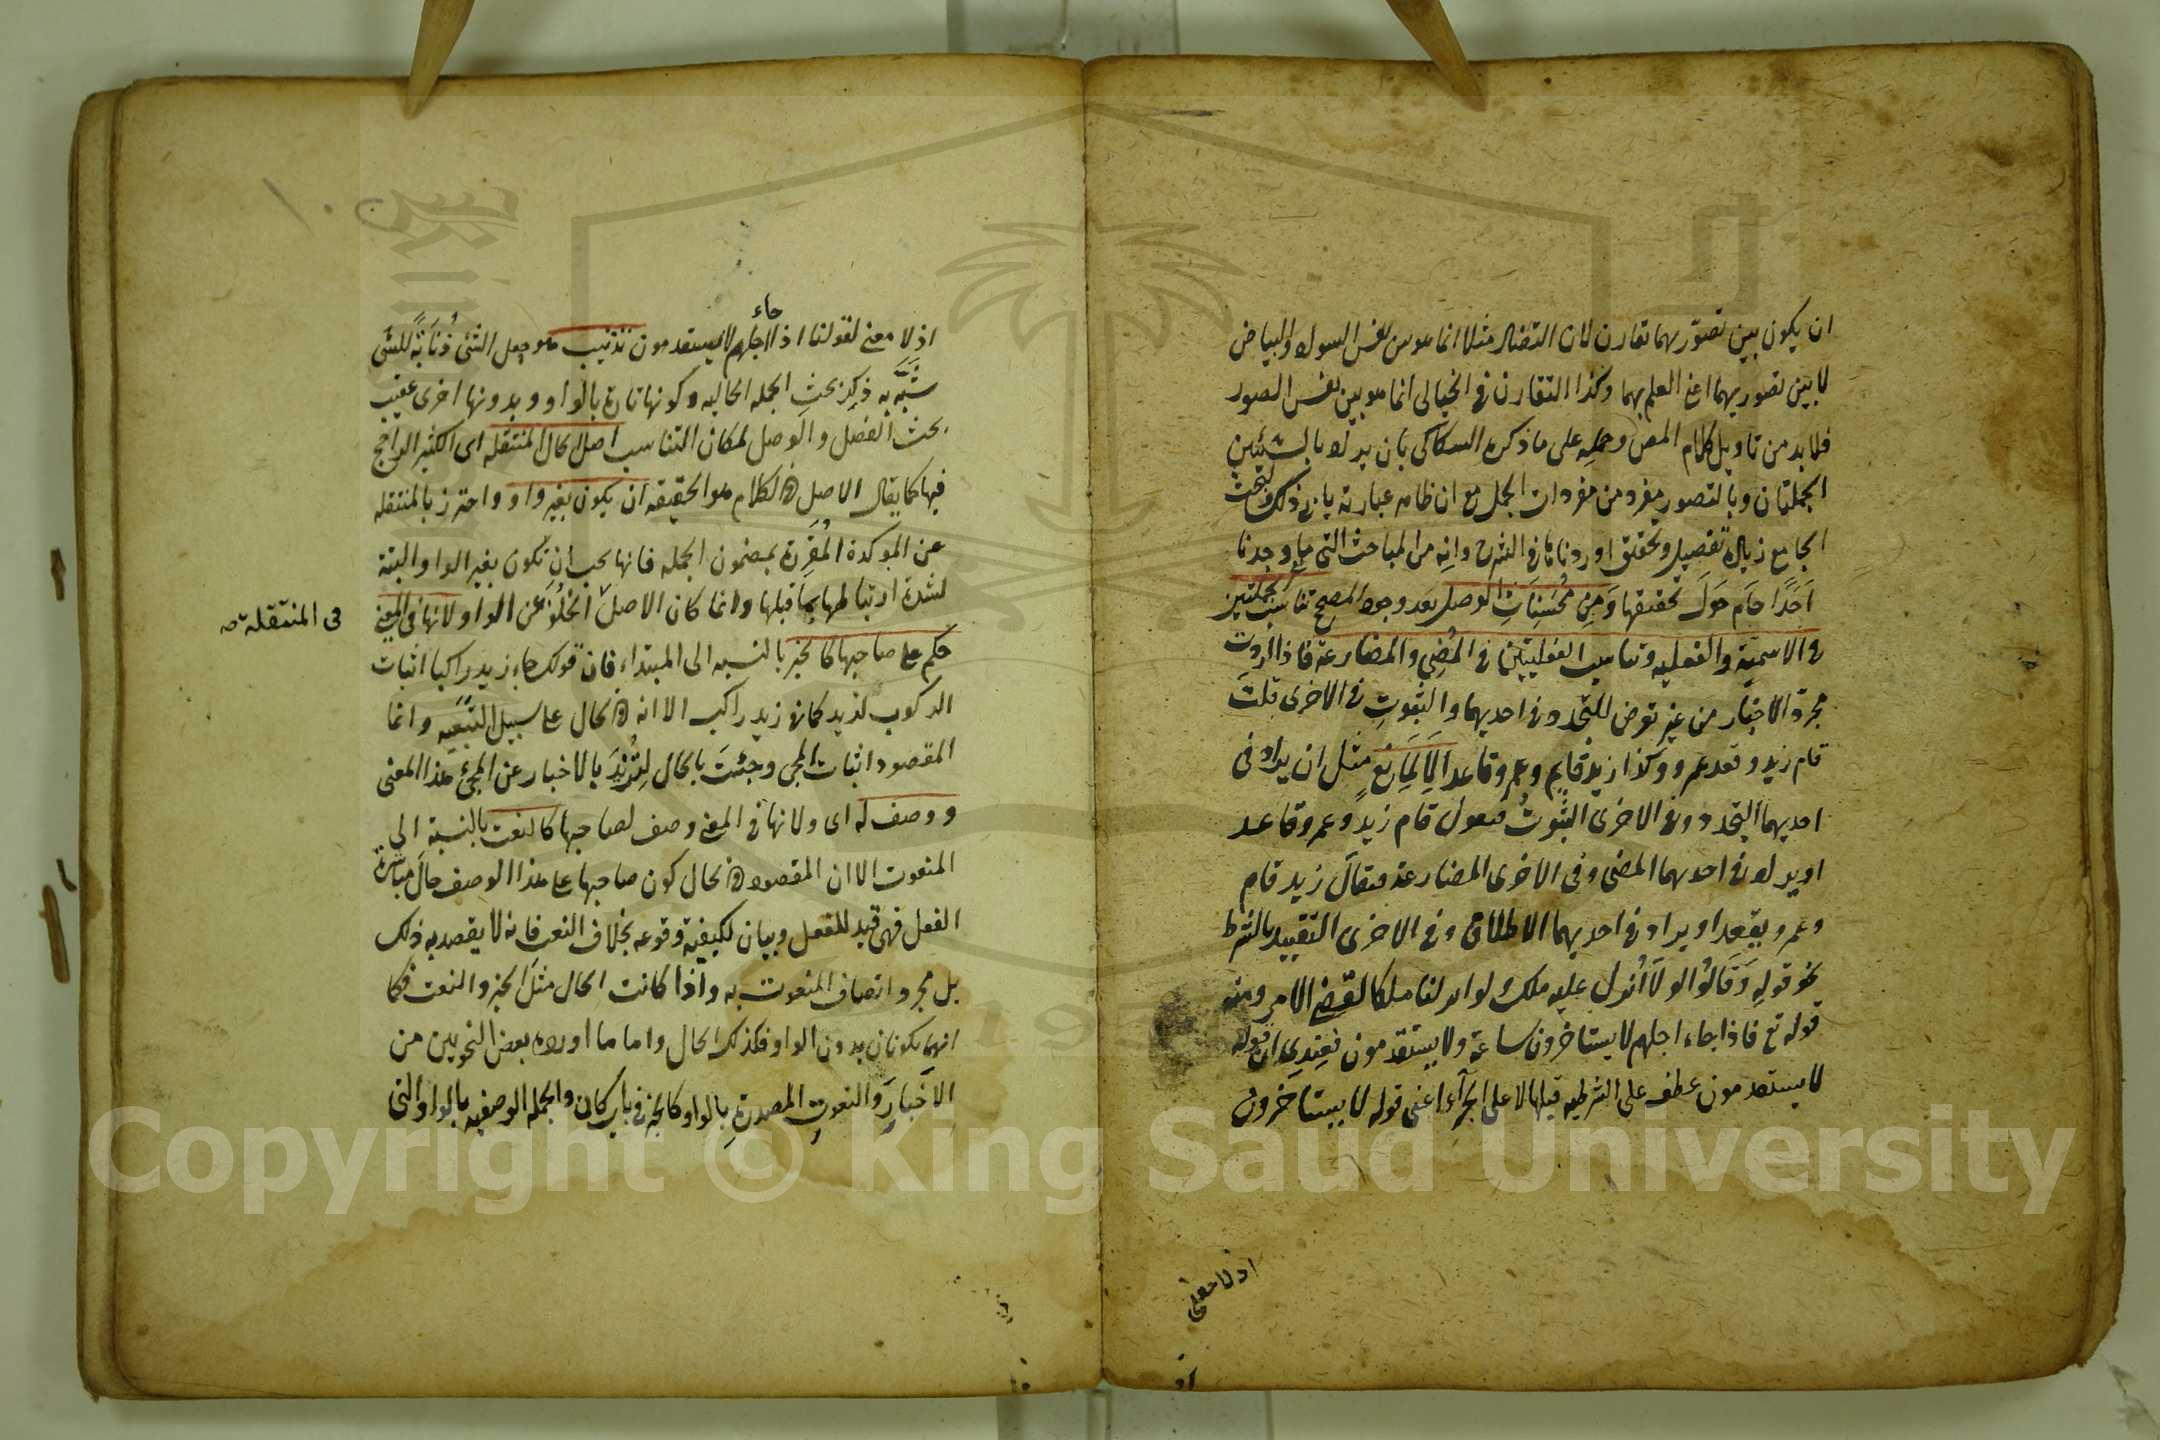 ان يكون بين تصوّريهما تقارن لان التضاد مثلا انما هو بين نفس السواد والبياض
لا بين تصوريهما اعني العلم بهما وكذا التقارن في الخيالي انما هو بين نفس الصور
فلا بد من تاويل كلام المص وحمله على ما ذكره السكاكي بان يراد بالشيئين
الجملتان وبالتصور مفرد من مفردات الجمل مع ان ظاهر عبارته يابى ذلك ولبحث
الجامع زيادة تفصيل وتحقيق اوردناها في الشرح وانه من المباحث التي ما وجدنا
اَحَدًا حَامَ حَولَ تحقيقها وَمِن مُحَسِنَاتِ الوصل بعد وجود المصحح تناسب الجملتين
في الاسمية والفعليه وتناسب الفعليتين في المُضِي والمضارعة فاذا اردت
مجرد الاخبار من غير تعرض للتجدد في احديهما والثبوت في الاخرى قلت
قام زيد وقعد عمرو وكذا زيد قايم وعمرو قاعد اِلا لِمَانِع مثل ان يراد في
احديهما التجدد وفي الاخرى الثبوتُ فيقول قام زيد وعمرو قاعد
او يراد في احديهما المضي وفي الاخرى المضارعة فيقال زيد قام
وعمرو يقعد او يراد في احديهما الاطلاق وفي الاخرى التقييد بالشرط
نحو قوله وَقَالُوا لولا اُنزل عليه ملك ولو انزلنا ملكا لقضي الامر ومنه
قوله تع فاذا جاء اجلهم لا يستاخرون ساعة ولا يستقدمون فعندي ان قوله
لا يستقدمون عطف على الشرطيه قبلها لا على الجزآء اعني قوله لا يستاخرون
اذ لا معنى
اذ لا معنى لقولنا اذا جاء اجلهم لا يستقدمون تذنيب هو جعل الشئ ذُنَابَةً للشئ
شَبَّه به ذِكر بحث الجمله الحاليه وكونها تارة بالواو وبدونها اخرى عقيب
بحث الفصل والوصل لمكان التناسب اصل الحال المنتقله اى الكثير الراجح
فيها كما يقال الاصل في الكلام هو الحقيقه ان يكون بغير واو واحترز بالمنتقله
عن الموكدة المُقَرِرة بمضمون الجمله فانها يجب ان تكون بغير الواو البتة
لشدة ارتباطها بما قبلها وانما كان الاصل الخُلُوَّ عن الواو لانها في المعنى
فى المنتقلة صـ
حكم على صاحبها كالخبر بالنسبه الى المبتداء فان قولك جاء زيد راكبا اثبات
الركوب لزيد كما في زيد راكب الا انه في الحال على سبيل التبعيه وانما
المقصود اثبات المجى وجئتَ بالحال لِتُزِيدَ بالاخبار عن المجئ هذا المعنى
ووصف له اى ولانها في المعنى وصف لصاحبها كالنعت بالنسبة الى
المنعوت الا ان المقصود في الحال كون صاحبها على هذا الوصف حال مباشرة
الفعل فهى قيد للفعل وبيان لكيفية وقوعه بخلاف النعت فانه لا يقصد به ذلك
بل مجرد اتصاف المنعوت به واذا كانت الحال مثل الخبر والنعت فكما
انهما يكونان بدون الواو فكذلك الحال واما ما اورده بعض النحويين من
الاَخبَارِ والنعوتِ المصدرةِ بالواو كالخبر في باب كان والجمله الوصفيه بالواو التى
Copyright © King Saud University